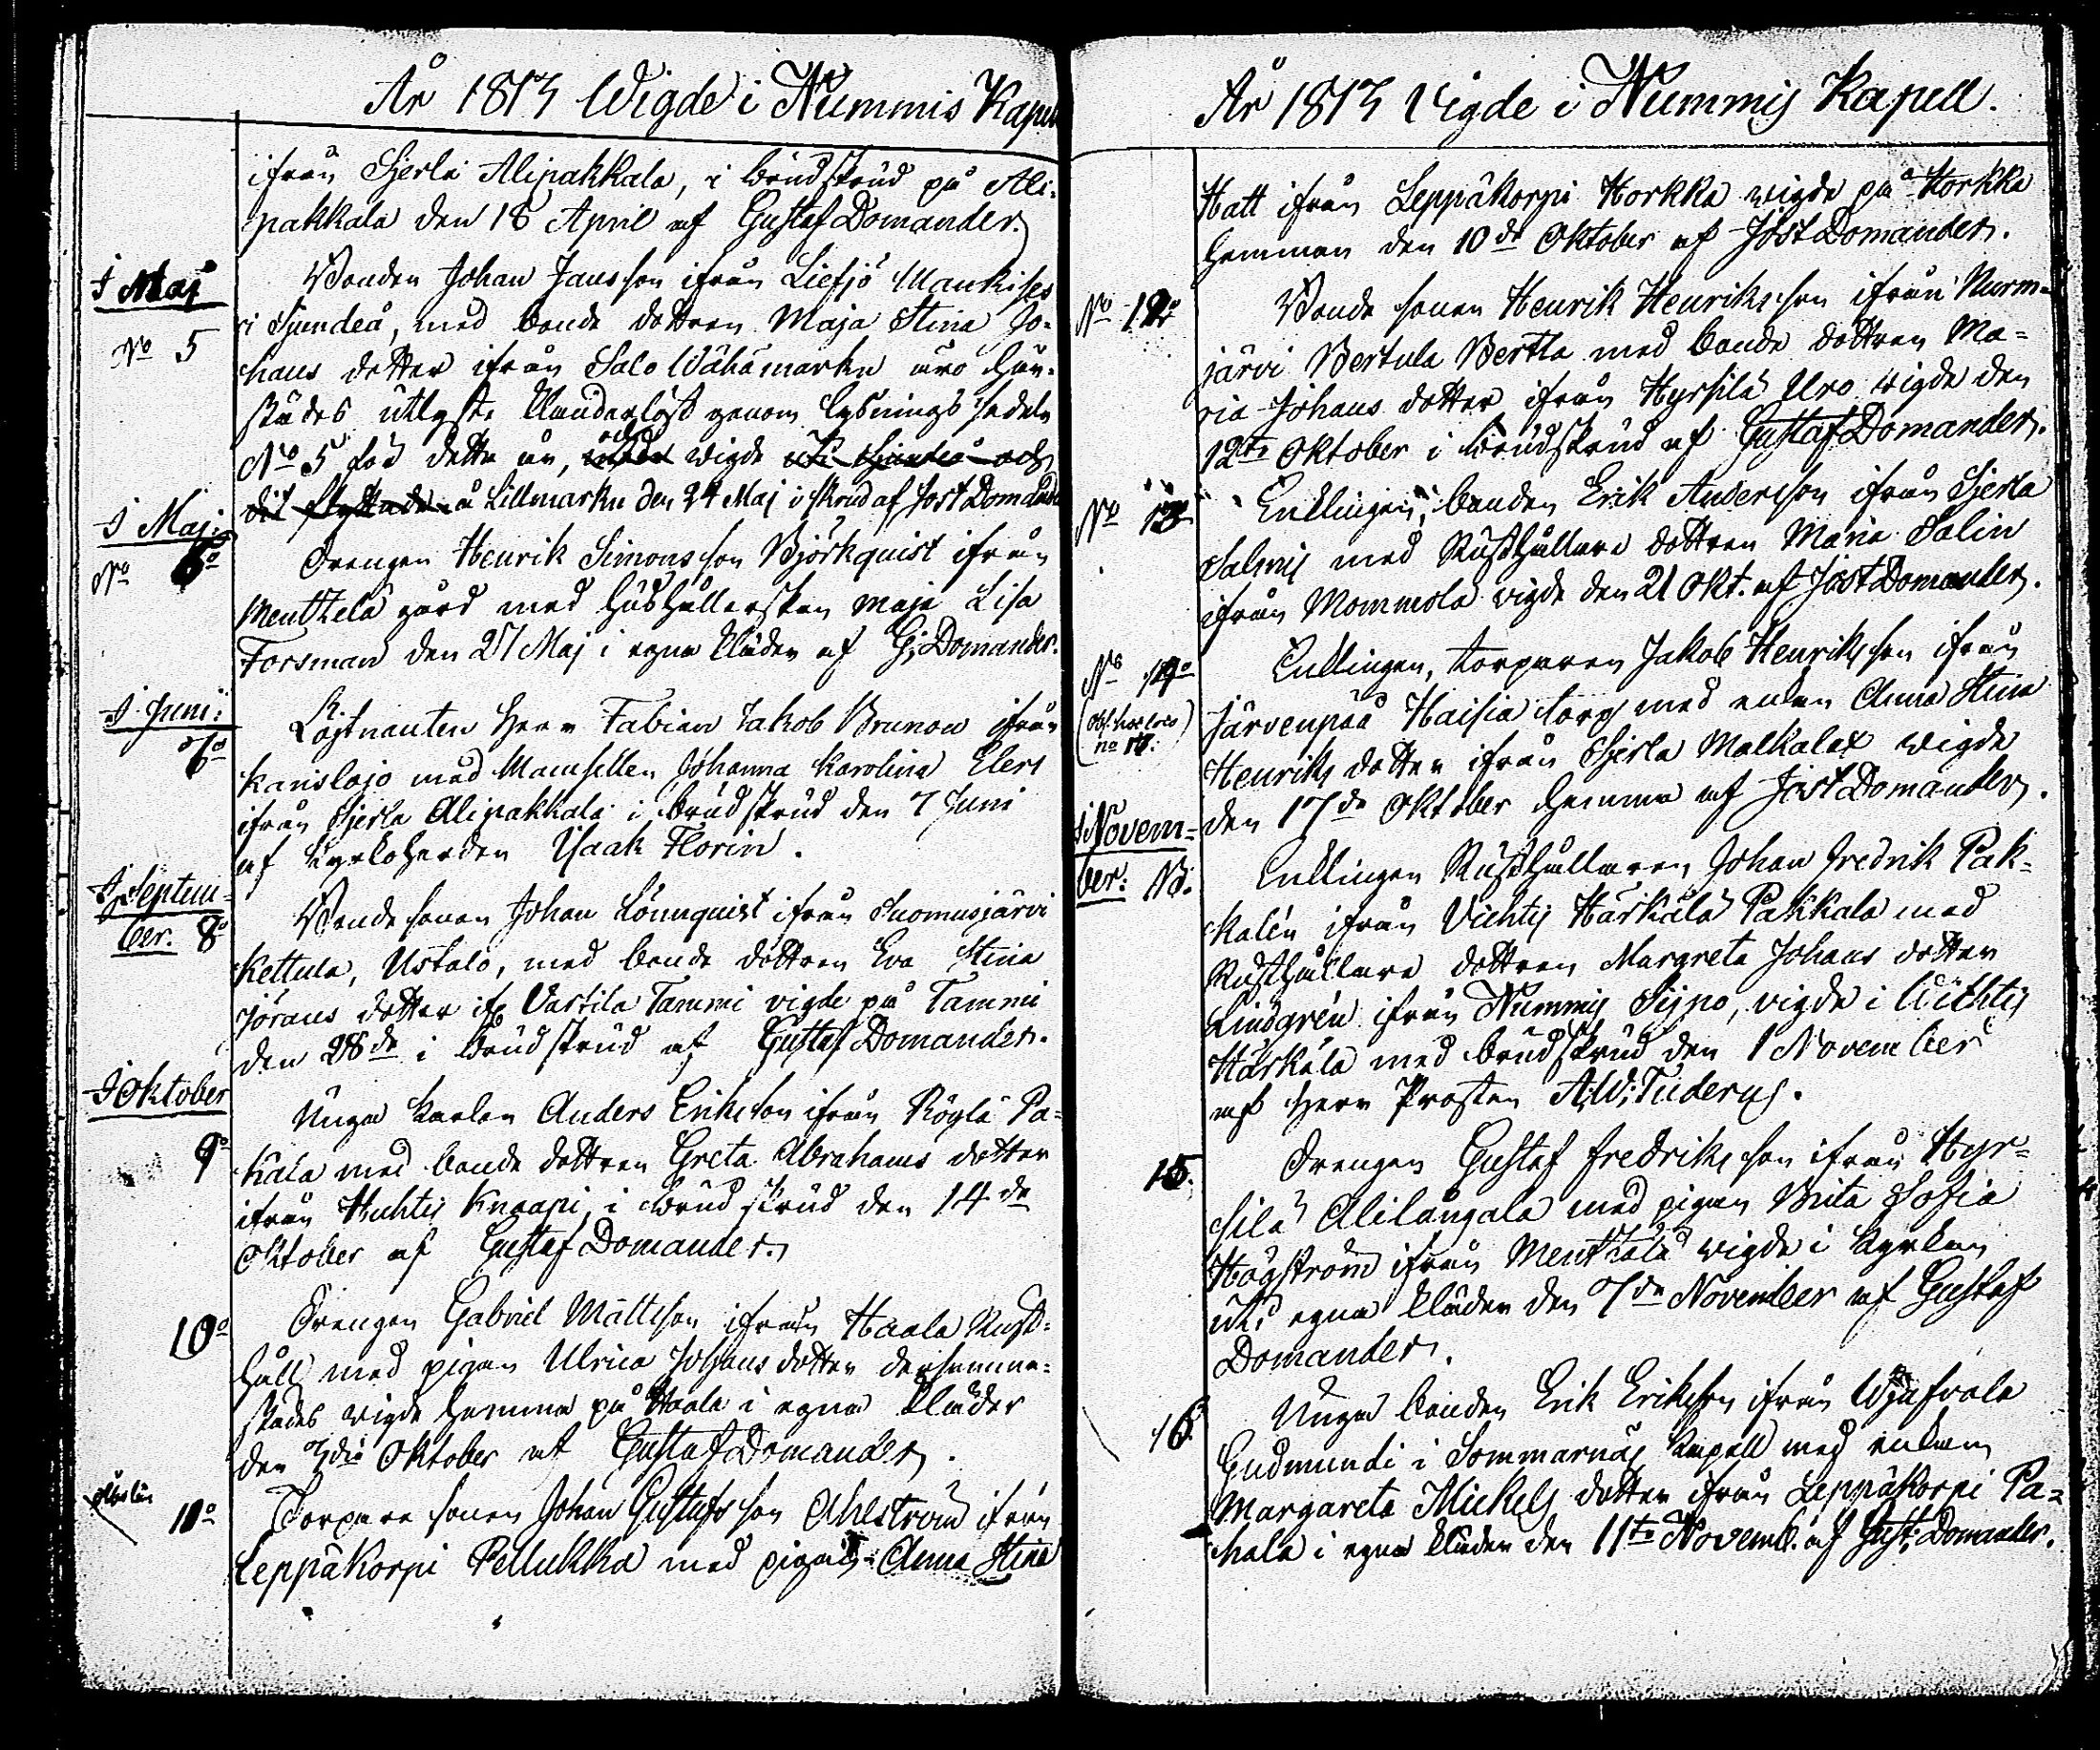 År 1813 Wigde i Nummis Kapell
ifrån Sjerla Alipakkala, i brudskrud på Ali-
pakkala den 18 April af Gustaf Domander.
I Maj
Bonden Johan Jansson ifrån Liefjö Mankises
i Sjundeå, med bonde dottren Maja Stina Jo-
No 5
hans dotter ifrån Salo Wähämarku äro här-
städes utlyste klanderlöst genom lysnings sedeln
No 5 för detta år, och wigde uti Sjundeå och
dit flyttade å Lillmarku den 24 Maj i skrud af Jost Domander
I Maj:
No 6o
Drengen Henrik Simonsson Björkquist ifrån
Menthela gård med hushållerskan Maja Lisa
Forsman den 27 Maj i egna kläder af G: Domander.
I Juni:
7o
Löjtnanten Herr Fabian Jakob Brunow ifrån
Karislojo med Mamsellen Johanna Karolina Elers
ifrån Sjerla Alipakkala i brudskrud den 7 Juni
af Kyrkoherden Isaak Florin.
I Septem-
ber. 8o
Bonde sonen Johan Lönnquist ifrån Suomusjärvi
Kettula, Ustalo, med bonde dottren Eva Stina
Jörans dotter ifr Vartila Tammi vigde på Tammi
den 28de i brudskrud af Gustaf Domander.
I Oktober
9o
Unga karlen Anders Eriksson ifrån Rögla Pa-
kala med bonde dottren Greta Abrahams dotter
ifrån Huhtis Knaapi, i brudskrud den 14de
Oktober af Gustaf Domander.
10o
Drengen Gabriel Mattsson ifrån Haala Rust-
håll med pigan Ulrica Johans dotter dersamma-
städes wigde hemma på Haala i egna kläder
den 7de Oktober af Gustaf Domander.
11o
Torpare sonen Johan Gustafs son Ahlström ifrån
Leppäkorpi Pellukka med pigan Anna Stina
År 1813 Vigde i Nummis Kapell.
Hatt ifrån Leppäkorpi Korkka wigde på Korkka
hemman den 10de Oktober af Jost Domander.
No 12o
Bonde sonen Henrik Henriksson ifrån Nurm-
järvi Bertula Bertla med bonde dottren Ma-
ria Johans dotter ifrån Hyrsilä Uro wigde den
12te Oktober i brudskrud af Gustaf Domander.
No 13
Enklingen, bonden Erik Andersson ifrån Sjerla
Salmis med Rusthållare dottren Maria Salin
ifrån Mommola wigde den 21 Okt. af Jost Domander.
No 14o
Enklingen, torparen Jakob Henriksson ifrån
Järvenpää Haisia torp med enkan Anna Stina
Henriks dotter ifrån Sjerla Malkalax wigde
den 17de Oktober hemma af Jost Domander.
I Novem-
ber:
Enklingen Rusthållaren Johan Fredrik Pak-
kalén ifrån Vichtis Härkälä Pakkala med
Rusthållare dottren Margreta Johans dotter
Lindgrén ifrån Nummis Sippo, vigde i Wichtis
Härkälä med brudskrud den 1 November
af Herr Prosten A:W: Tuderus.
15.
Drengen Gustaf Fredriks son ifrån Hyr-
silä Alilångala med pigan Brita Sofia
Högström ifrån Menthälä wigde i kyrkan
uti egna kläder den 7de November af Gustaf
Domander.
16
Unga bonden Erik Eriksson ifrån
Gudmundi i Sommarnäs Kapell med enkan
Margareta Mickels dotter ifrån Leppäkorpi Pa-
kala i egna kläder den 11te Novemb. af Gust: Domander.